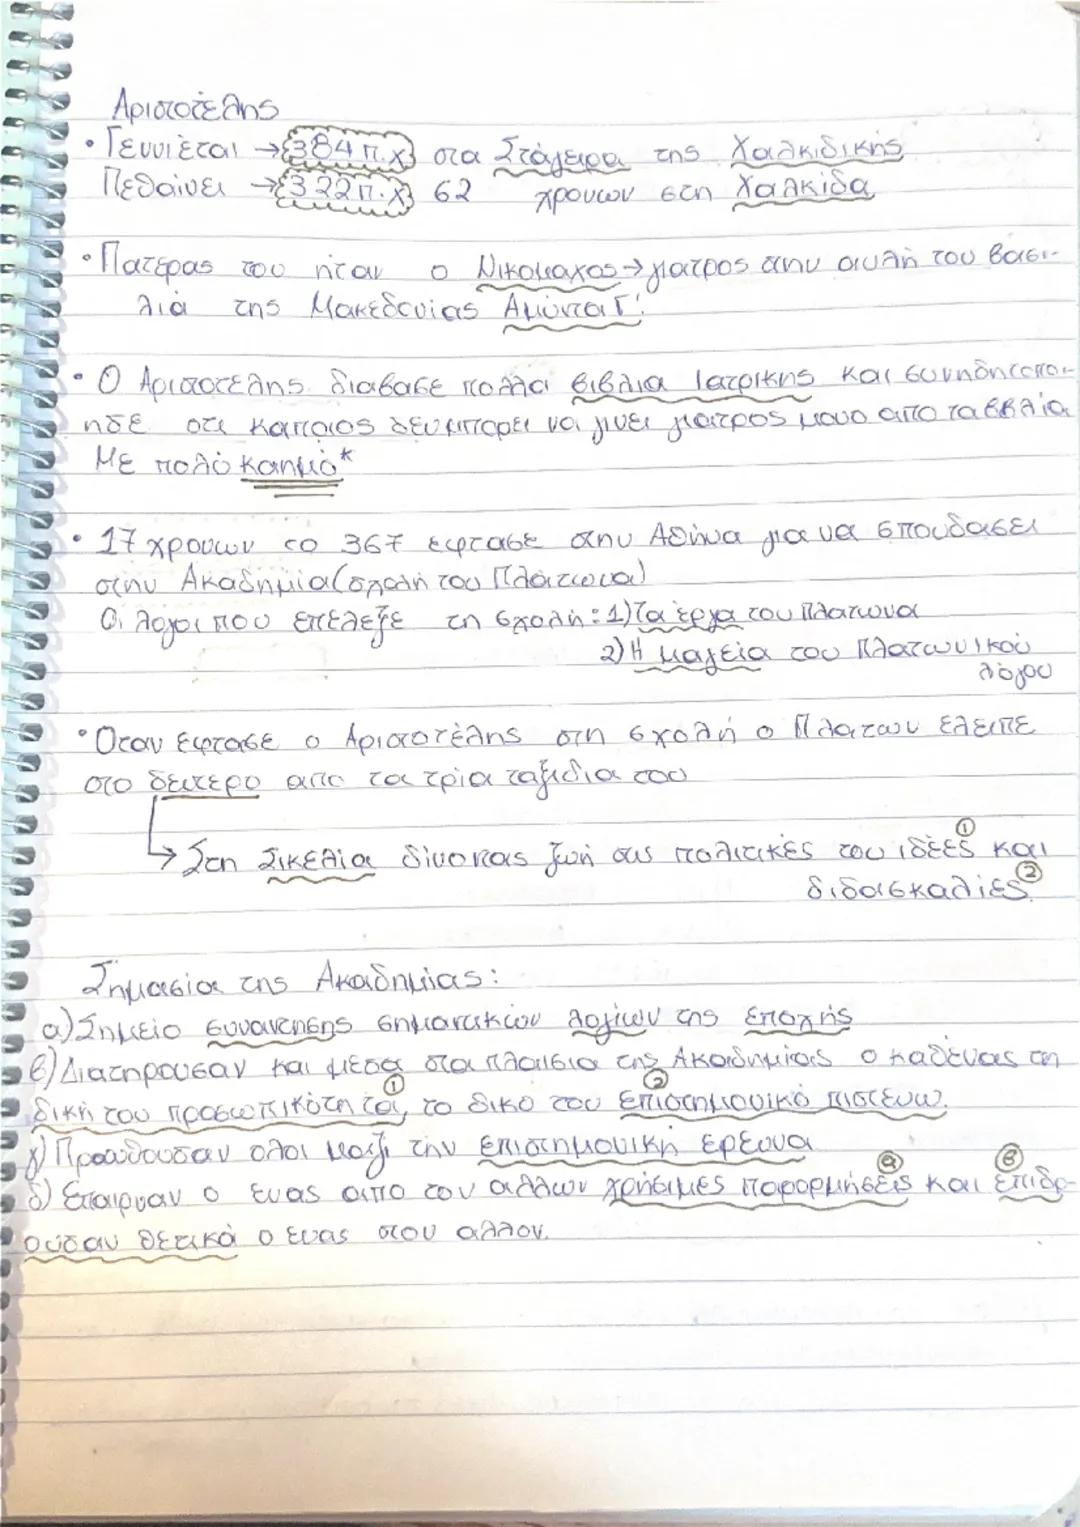 Αριστοτέλης
• Γεννιέται → 384 π.χ στα Στάγειρα της Χαλκιδικής
Πεθαίνει → 322 π.χ 62 χρονων στη Χαλκίδα
• Πατερας του ήταν ο Νικομαχος → γιατρος στην αυλή του βασι-
λιά της Μακεδονίας Αμύντα Γ'.
• Ο Αριστοτέλης διαβασε πολλα βιβλια Ιατρικης και συνηδητοποι-
ησε οτι καποιος δεν μπορει να γινει γιατρος μονο απο τα βιβλία
Με πολύ καημό*
• 17 χρονων το 367 εφτασε στην Αθήνα για να σπουδασει
στην Ακαδημία (σχολή του Πλάτωνα)
Οι λόγοι που επέλεξε τη σχολή: 1) Τα έργα του Πλατωνα
2) Η μαγεία του Πλατωνικού
λόγου
• Οταν εφτασε ο Αριστοτέλης στη σχολή ο Πλατων ελειπε
στο δευτερο απο τα τρία ταξιδια του
↳ Στη Σικελία δίνοντας ζωή στις πολιτικές του ιδέες ① και
διδασκαλίες ②
Σημασία της Ακαδημίας:
α) Σημείο συναντησης σημαντικών λογίων της εποχής
β) Διατηρουσαν και μεσα στα πλαισια της Ακαδημίας ο καθένας τη
δική του προσωπικότητα ①, το δικο του επιστημονικό πιστευω ②.
γ) Προωθουσαν ολοι μαζι την επιστημονική έρευνα
δ) Επαιρναν ο ενας απο τον αλλων χρήσιμες παρορμήσεις ⓐ και επιδρ- Ⓑ
ούσαν θετικά ο ενας στον αλλον.